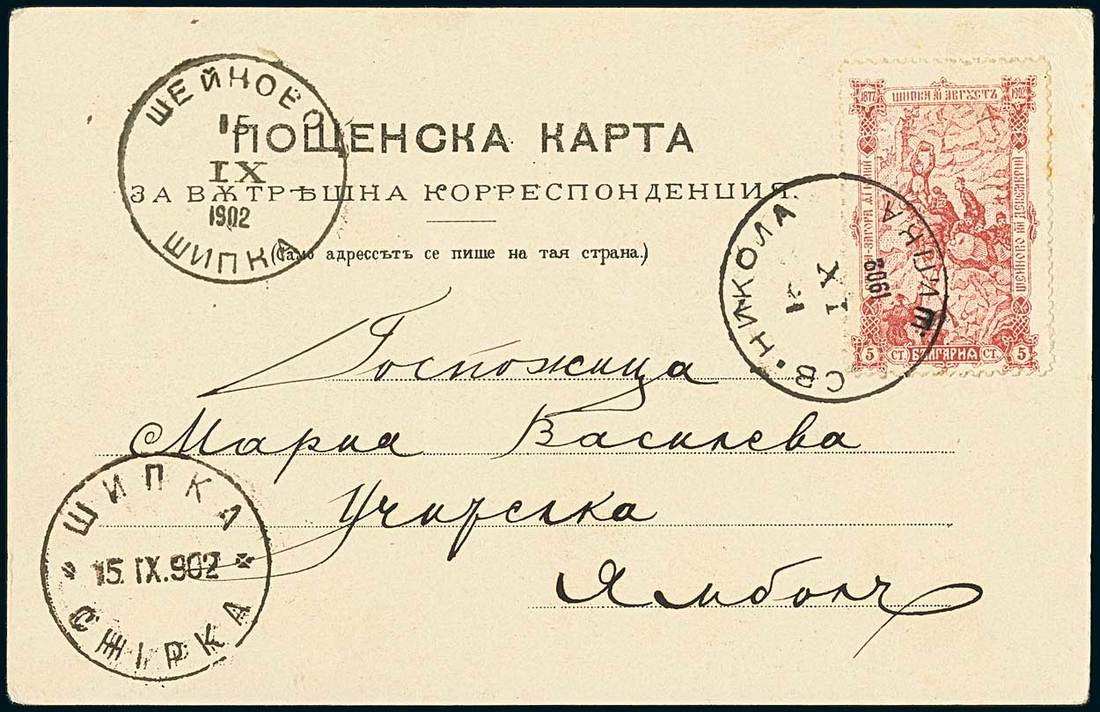 ШЕЙНОВО
15
IX
1902
ШИПКА
ПОЩЕНСКА КАРТА
ЗА ВѪТРѢШНА КОРРЕСПОНДЕНЦИЯ.
(Само адрессътъ се пише на тая страна.)
1877
ШИПКА 11 АВГУСТЪ
1902
СВ. НИКОЛА
IX
1902
ШИПКА
5 СТ. БЪЛГАРИЯ СТ. 5
Госпожица
Мария Василева
Учителка
Ямболъ
ШИПКА
15.IX.902